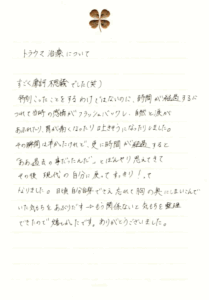 トラウマ治療について
すごく摩訶不思議でした(笑)
特別こったことをするわけではないのに、時間が経過するに
つれて当時の感情がフラッシュバックし、自然と涙が
あふれたり、胃が痛くなったり吐きそうになったりしました。
その瞬間は辛かったけれど、更に時間が経過すると
"ああ過去の事だったんだ"とぼんやり思えてきて
その後 現代の自分に戻ってすっきり!って
なりました。日頃 自分自身でさえ忘れて胸の奥にしまいこんで
いた気持ちをあぶりだす→もう関係ないと気持ちを整理
できたので嬉しかったです。ありがとうございました。